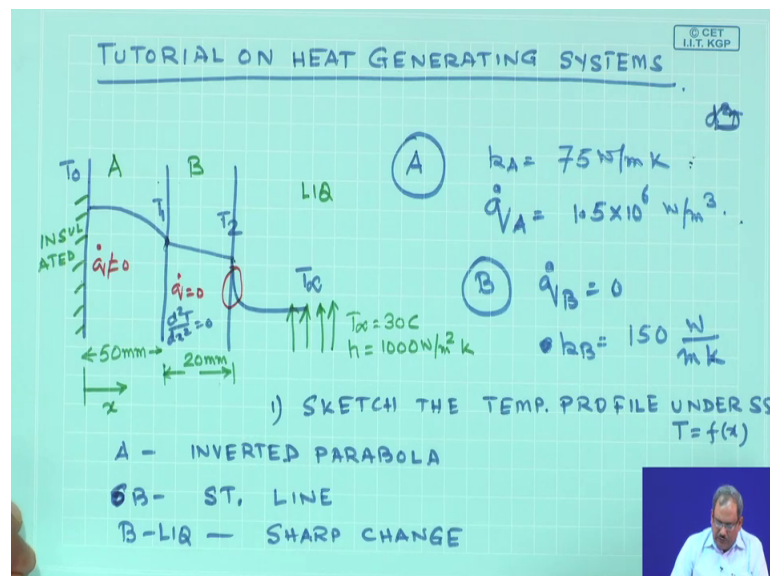 © CET
I.I.T. KGP
TUTORIAL ON HEAT GENERATING SYSTEMS
T0 A T1 B T2 LIQ
INSUL
ATED
q̇≠0
q̇=0
d²T/dx²=0
T∞
T∞ = 30C
h = 1000 W/m² K
50mm
20mm
x
A
kA = 75 W/mK
q̇A = 1.5×10⁶ W/m³
B
q̇B = 0
kB = 150 W/mK
1) SKETCH THE TEMP. PROFILE UNDER SS
T = f(x)
A - INVERTED PARABOLA
B - ST. LINE
B-LIQ - SHARP CHANGE